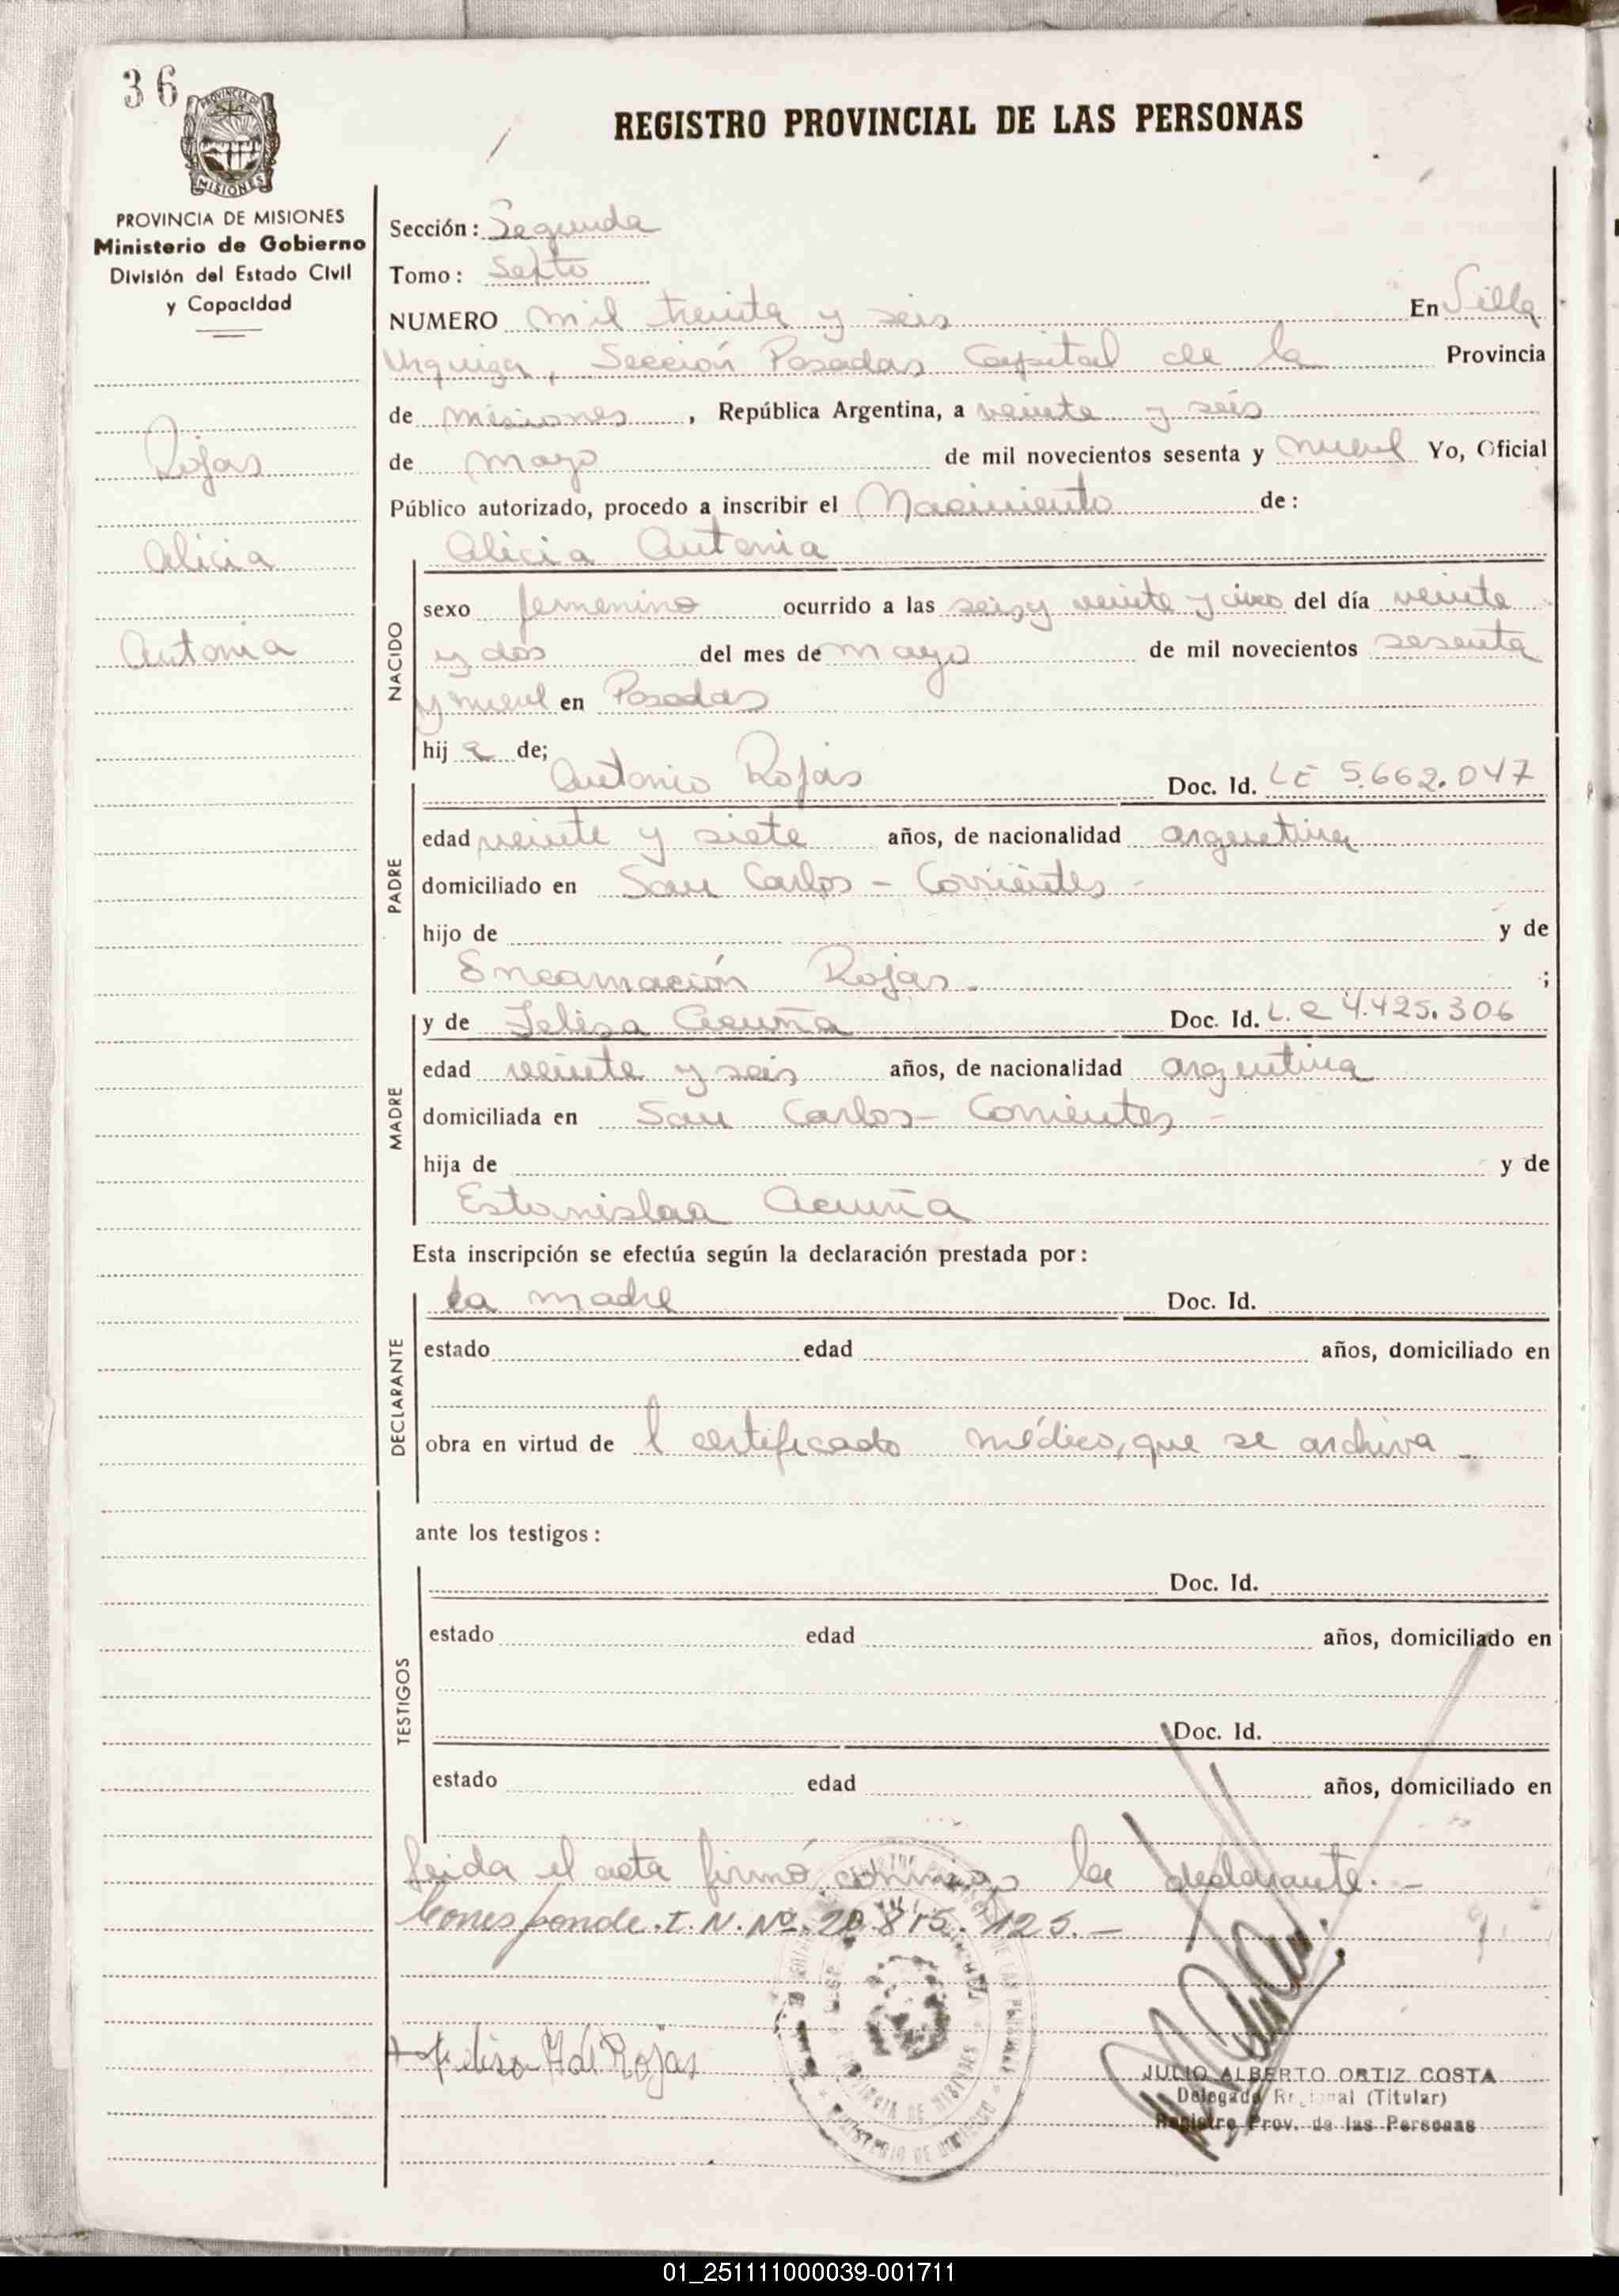 36
PROVINCIA DE MISIONES
REGISTRO PROVINCIAL DE LAS PERSONAS
PROVINCIA DE MISIONES
Ministerio de Gobierno
División del Estado Civil
y Capacidad
Rojas
Alicia
Antonia
Sección: Segunda
Tomo: Sexto
NUMERO mil treinta y seis En Villa
Urquiza, Sección Posadas Capital de la Provincia
de misiones, República Argentina, a veinte y seis
de mayo de mil novecientos sesenta y nueve Yo, Oficial
Público autorizado, procedo a inscribir el Nacimiento de:
Alicia Antonia
NACIDO
sexo femenino ocurrido a las seis y veinte y cinco del día veinte
y dos del mes de mayo de mil novecientos sesenta
y nueve en Posadas
hij a de;
Antonio Rojas Doc. Id. LE 5.662.047
PADRE
edad veinte y siete años, de nacionalidad argentina
domiciliado en San Carlos - Corrientes -
hijo de y de
Encarnación Rojas. ;
y de Felisa Acuña Doc. Id. L.C 4.425.306
MADRE
edad veinte y seis años, de nacionalidad argentina
domiciliada en San Carlos - Corrientes -
hija de y de
Estanislaa Acuña
Esta inscripción se efectúa según la declaración prestada por:
la madre Doc. Id.
DECLARANTE
estado edad años, domiciliado en
obra en virtud de l certificado médico, que se archiva -
ante los testigos:
Doc. Id.
TESTIGOS
estado edad años, domiciliado en
Doc. Id.
estado edad años, domiciliado en
leida el acta firmó conmigo la declarante. -
Corresponde. I. N. Nº. 20.815.125. -
Felisa A de Rojas
JULIO ALBERTO ORTIZ COSTA
Delegado Regional (Titular)
Registro Prov. de las Personas
01_251111000039-001711